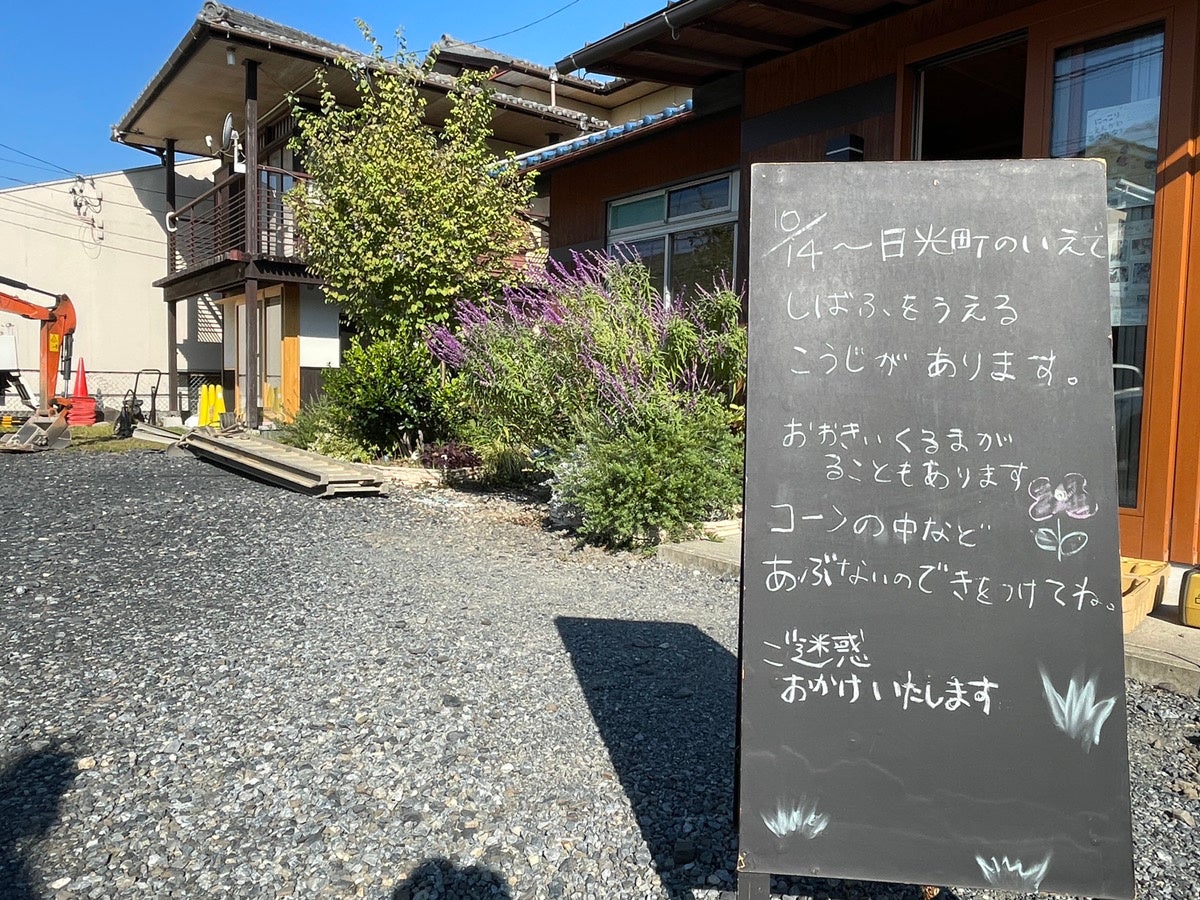 10/14〜日光町のいえで
しばふをうえる
こうじがあります。
おおきいくるまが
ることもあります
コーンの中など
あぶないのできをつけてね。
ご迷惑
おかけいたします